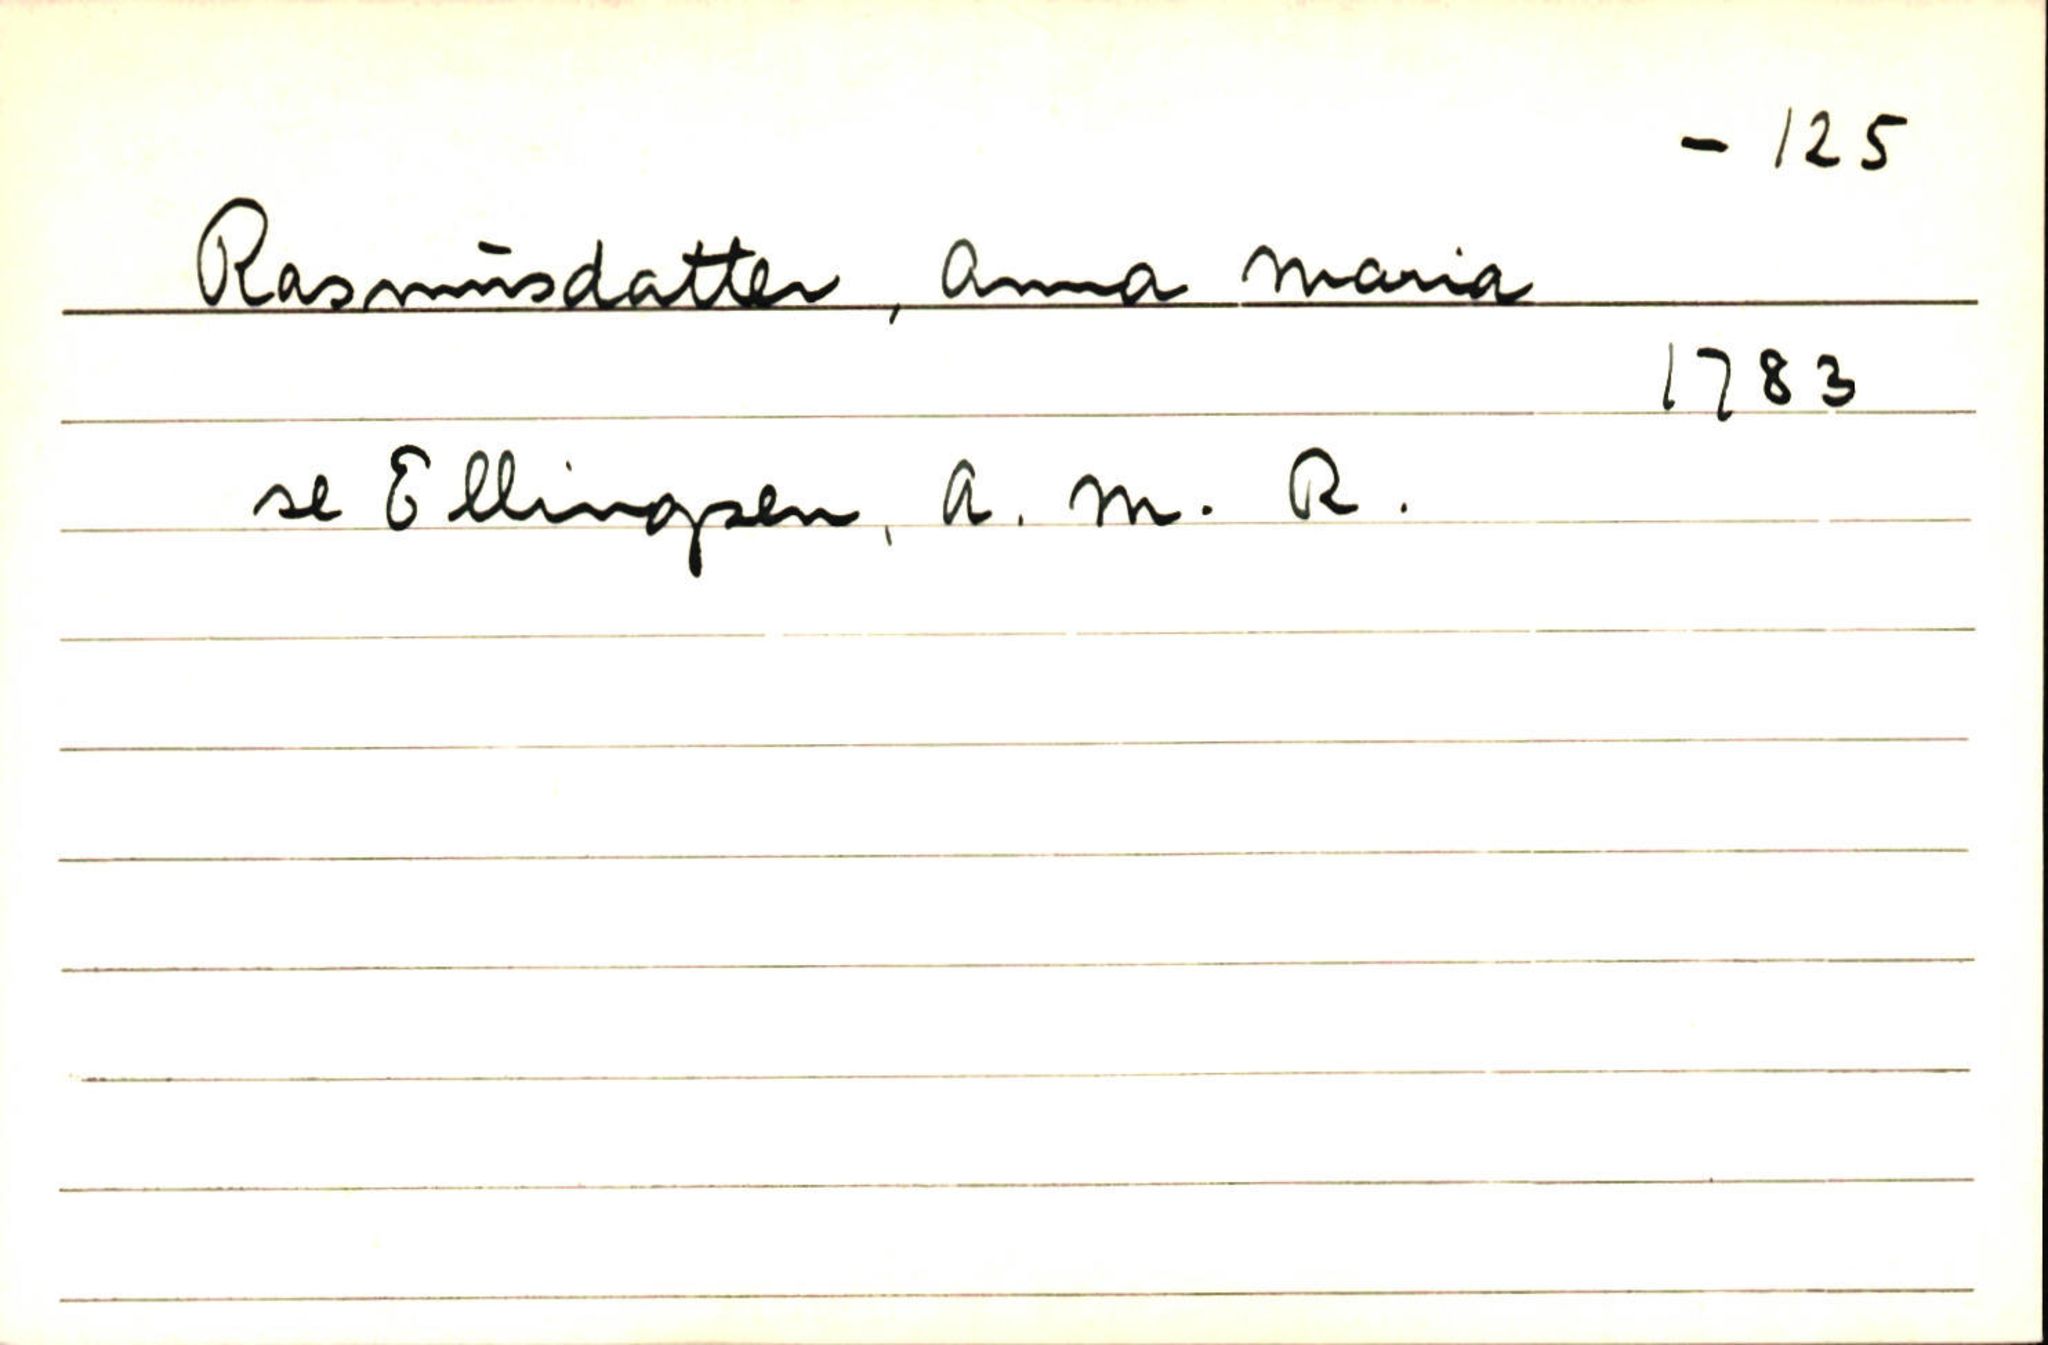 - 125
Rasmusdatter, Anna Maria
1783
se Ellingsen, A. M. R.